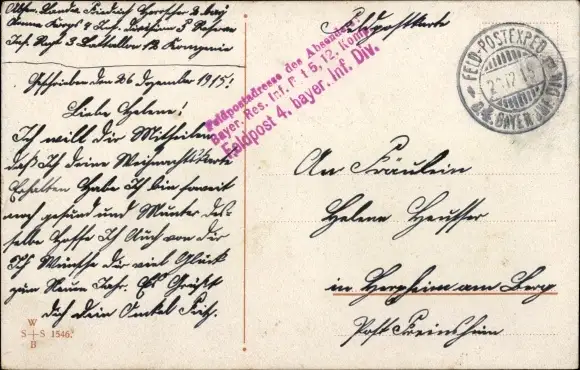 Friedrich
Armee Korps 4 Inf. Division 5 Reserve
Inf. Regt 3 Battallon 12 Kompenie
Geschrieben den 26 Dezember 1915!
Liebe Helene!
Ich will dir Mitheilen
daß Ich deine Weihnachtskarte
Erhalten Habe Ich bin soweit
noch gesund und Munter des-
selbe Hoffe Ich Auch von dir
Ich Wünsche dir viel Glück
zum Neuen Jahr. Es Grüßt
dich dein Onkel Fritz.
W
S+S 1546.
B
Feldpostkarte
Feldpostadresse des Absenders:
Bayer. Res. Inf. R t 5, 12. Komp.
Feldpost 4. bayer. Inf. Div.
FELD-POSTEXPED.
BAYER. INF. DIV.
An Fräulein
Helene Heusser
in Herxheim am Berg
Post Freinsheim